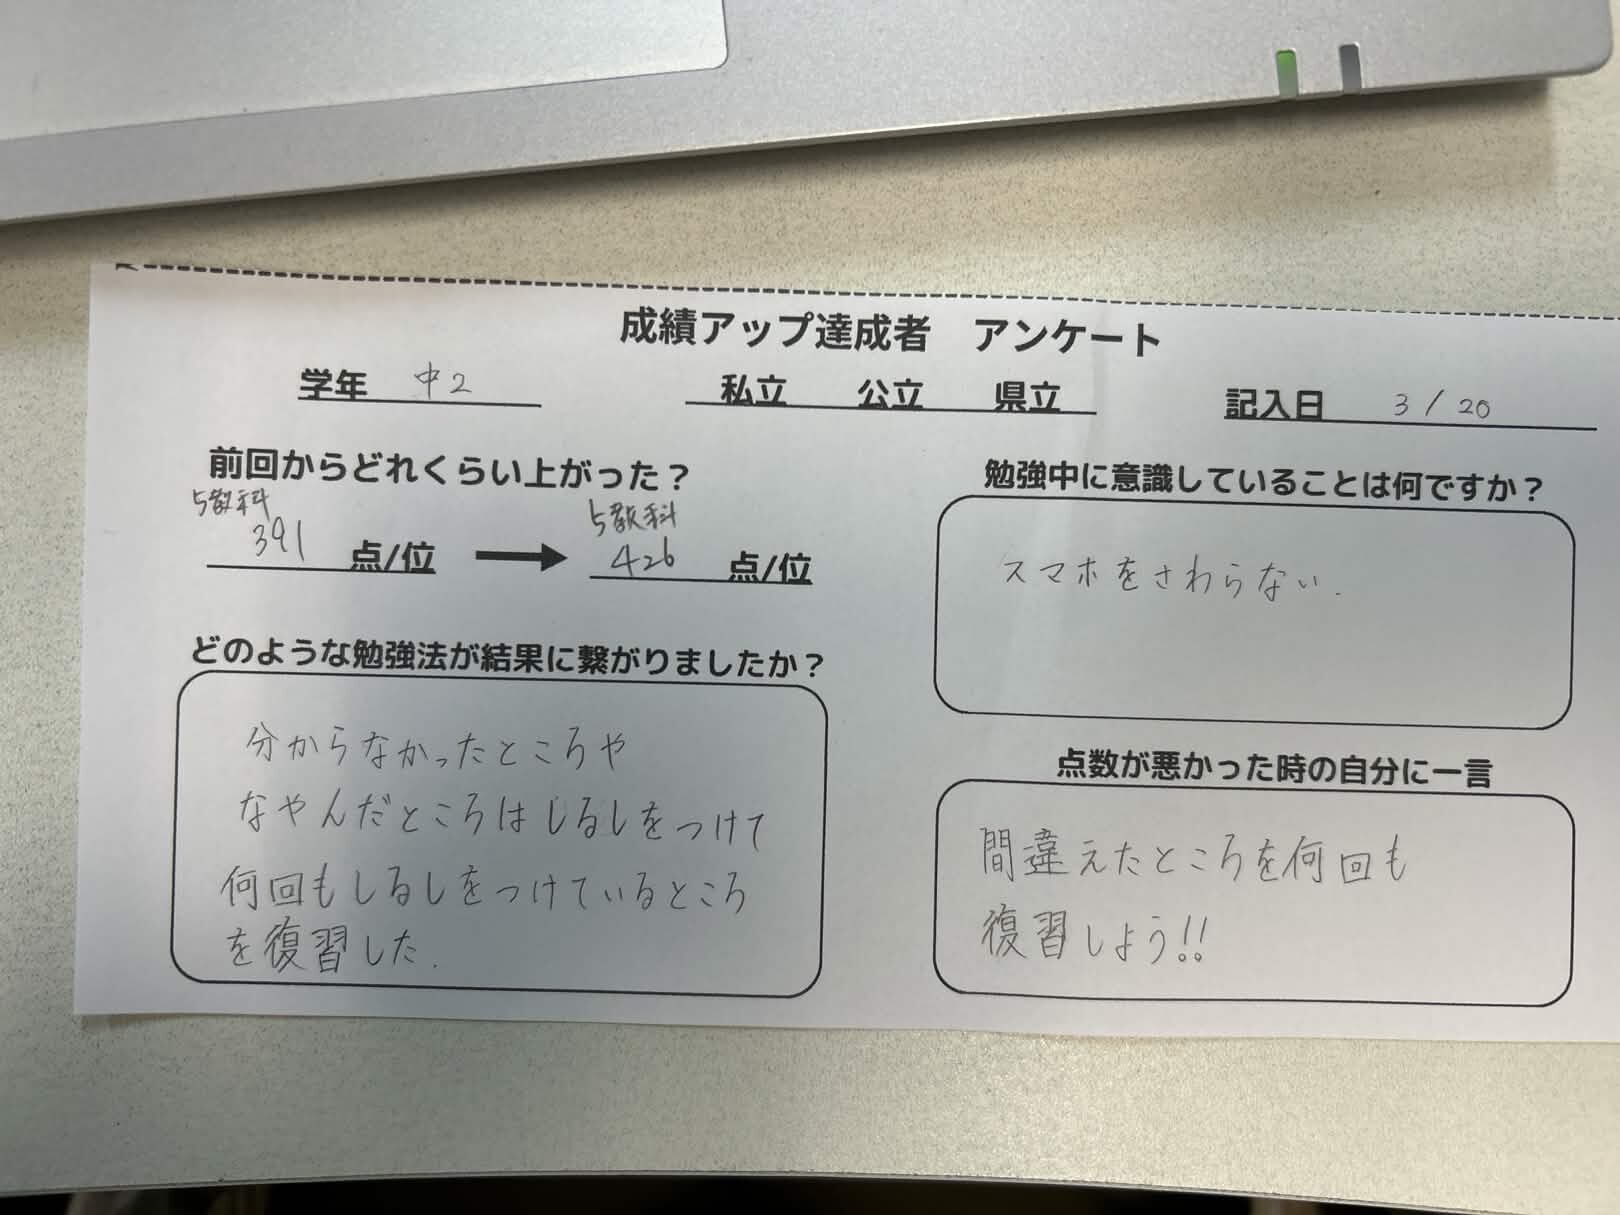 成績アップ達成者　アンケート
学年 中2 私立 公立 県立 記入日 3/20
前回からどれくらい上がった？
5教科 5教科
391 点/位 → 426 点/位
どのような勉強法が結果に繋がりましたか？
分からなかったところや
なやんだところはしるしをつけて
何回もしるしをつけているところ
を復習した.
勉強中に意識していることは何ですか？
スマホをさわらない.
点数が悪かった時の自分に一言
間違えたところを何回も
復習しよう!!